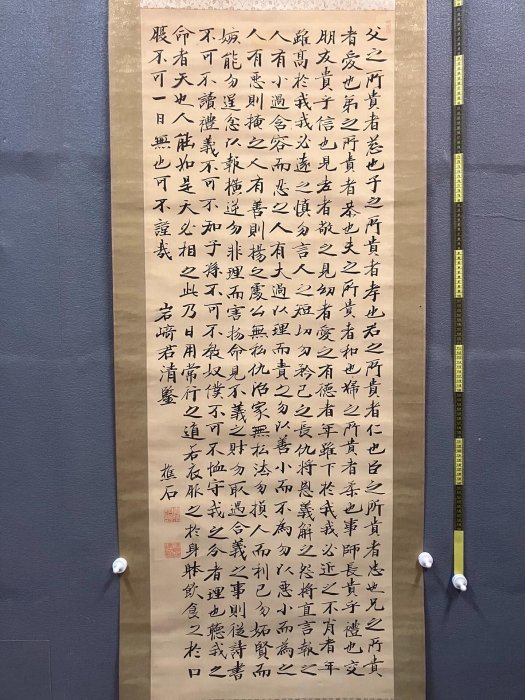 父之所貴者慈也子之所貴者孝也君之所貴者仁也臣之所貴者忠也兄之所貴
者愛也弟之所貴者恭也夫之所貴者和也婦之所貴者柔也事師長貴乎禮也交
朋友貴乎信也見老者敬之見幼者愛之有德者年雖下於我我必近之不肖者年
雖高於我我必遠之慎勿言人之短切勿矜己之長仇將恩義解之怨將直言報之
人有小過含容而忍之人有大過以理而責之勿以善小而不為勿以惡小而為之
人有惡則掩之人有善則揚之處公無私仇治家無私法勿損人而利己勿妬賢而
嫉能勿逞忿以報橫逆勿非理而害物命見不義之財勿取遇合義之事則從詩書
不可不讀禮義不可不知子孫不可不教奴僕不可不恤守我之分者理也聽我之
命者天也人能如是天必相之此乃日用常行之道若衣服之於身躰飲食之於口
腹不可一日無也可不謹哉
岩﨑君清鑒
樵石